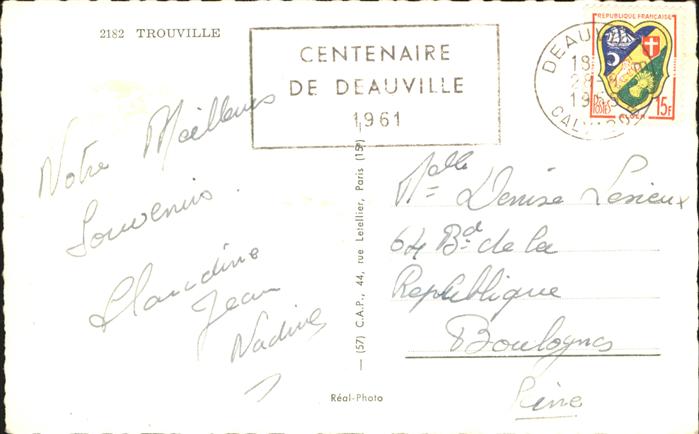 2182 TROUVILLE
CENTENAIRE
DE DEAUVILLE
1961
REPUBLIQUE FRANÇAISE
POSTES
15F
ALGER
DEAUVILLE
CALVADOS
Notre Meilleurs
Souvenirs.
Claudine
Jean
Nadine
(57) C.A.P., 44, rue Letellier, Paris (15e)
Réal-Photo
Melle Denise Lesieux
64 Bd de la
République
Boulogne
Seine